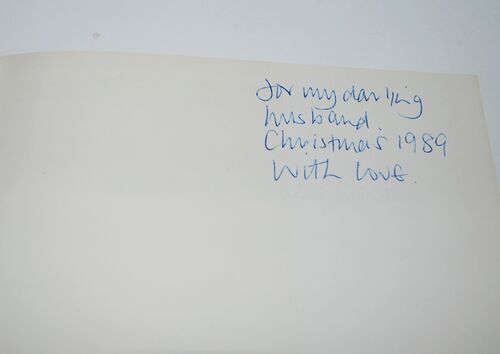 for my darling
husband.
Christmas 1989
With love.